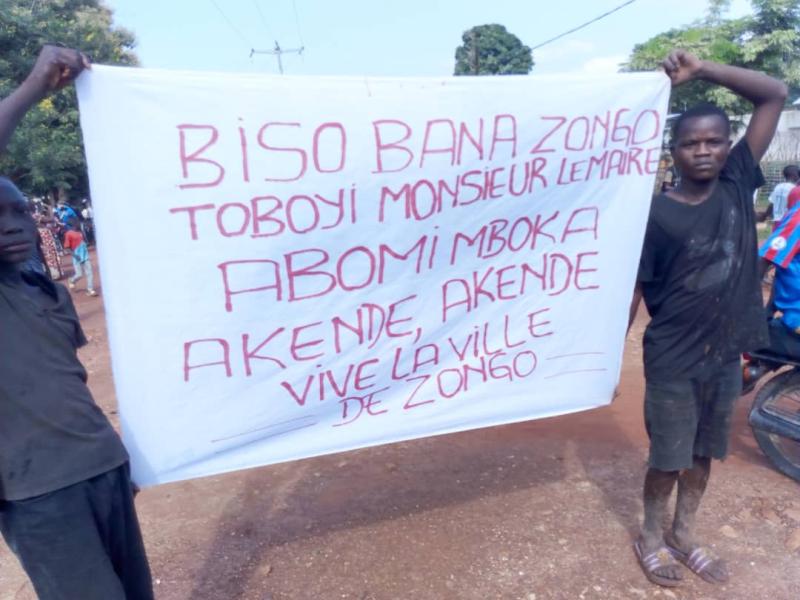 BISO BANA ZONGO
TOBOYI MONSIEUR LE MAIRE
ABOMI MBOKA
AKENDE, AKENDE
VIVE LA VILLE
DE ZONGO